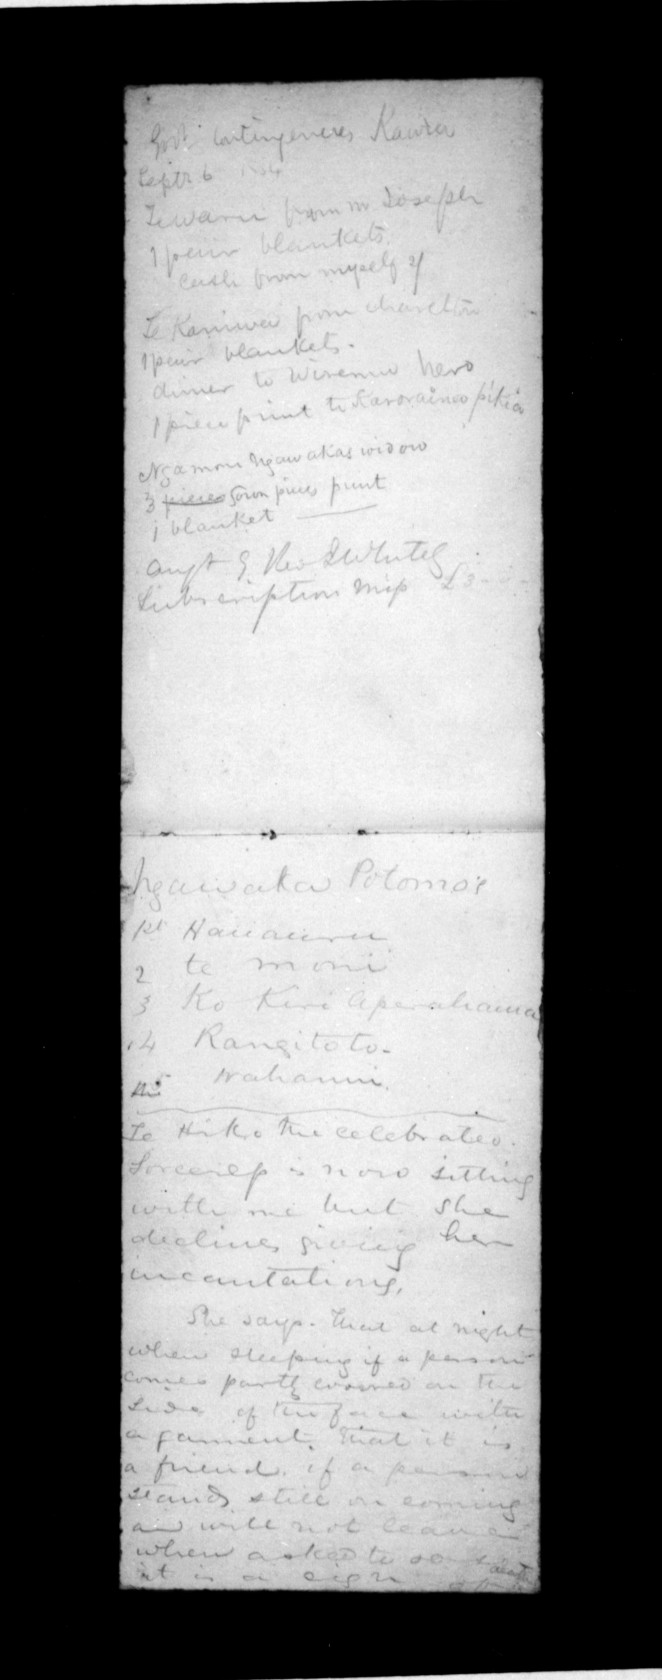 Govt Contingencies Kawia
Septr 6
Te Waru from Mr Joseph
1 pair blankets.
Cash from myself
Te Kaniwa from Charelton
1 pair blankets.
dinner to Wiremu Nero
1 piece print to
Ngamoni Ngawakas widow
3 pieces Gown pieces print
1 blanket
Augt 9 Rev
Subscription £3
Ngawaka Potomo's
1st Hauauru
2 te moni
3 Ko Keri Aperahama
4 Rangitoto.
5 Wahanui.
Te Hiko the celebrated
Sorceress is now sitting
with me but she
declines giving her
incantations,
She says. that at night
when sleeping if a person
comes partly covered on the
side of the face with
a garment. that it is
a friend. if a person
stands still on coming
and will not leave
when asked to do so
it is a sign